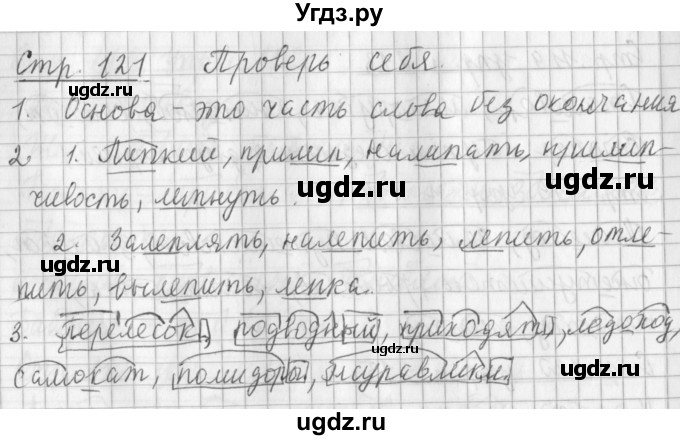 Угдз.ру
Стр. 121 Проверь себя.
1. Основа - это часть слова без окончания
ugdz.ru ugdz.ru
2. 1. Липкий, прилип, налипать, прилип-
ugdz.ru
чивость, липнуть.
ugdz.ru
2. Залеплять, налепить, лепить, отле-
ugdz.ru
пить, вылепить, лепка.
ugdz.ru
3. перелесок, подводный, приходят, ледоход,
самокат, помидоры, журавлики
ugdz.ru
ugdz.ru